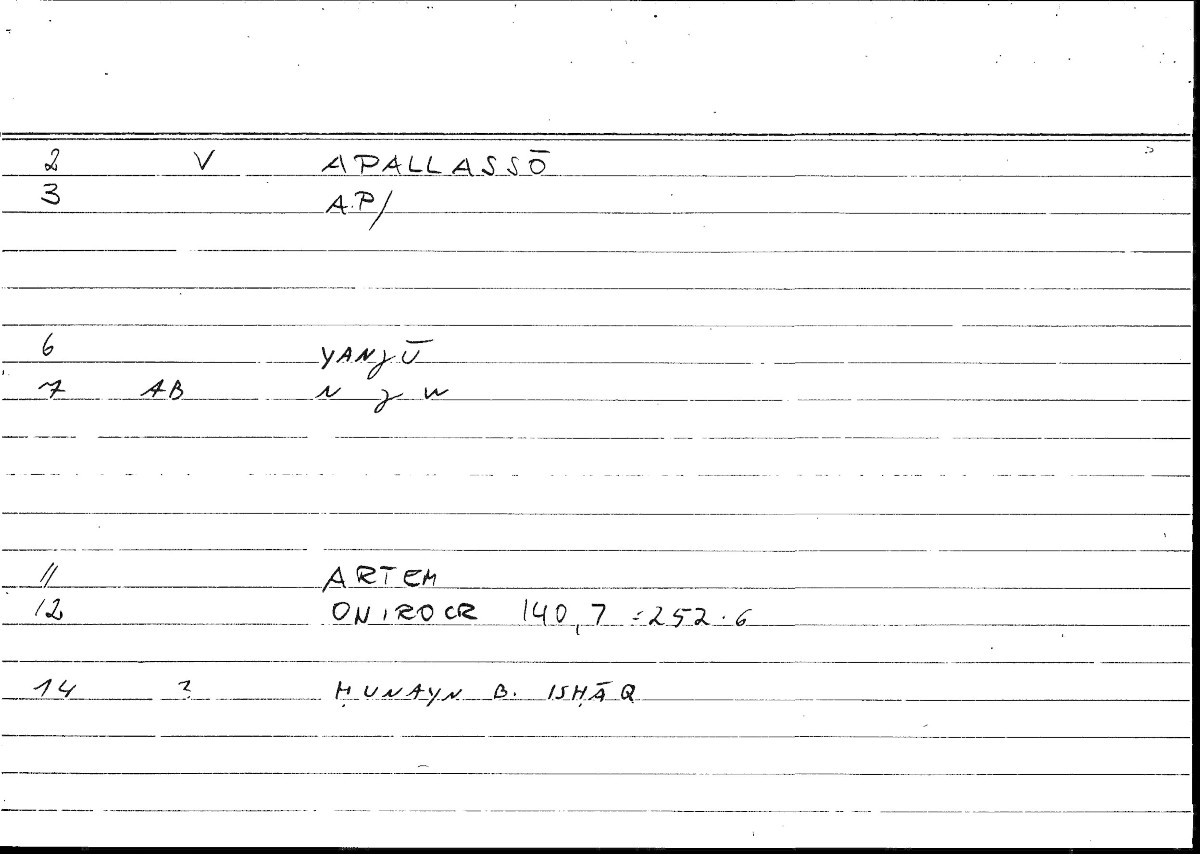 2 V APALLASSŌ
3 A.P/
6 YANJŪ
7 AB N J W
11 ARTEM
12 ONIROCR 140,7 = 252.6
14 ? ḤUNAYN B. ISḤĀQ